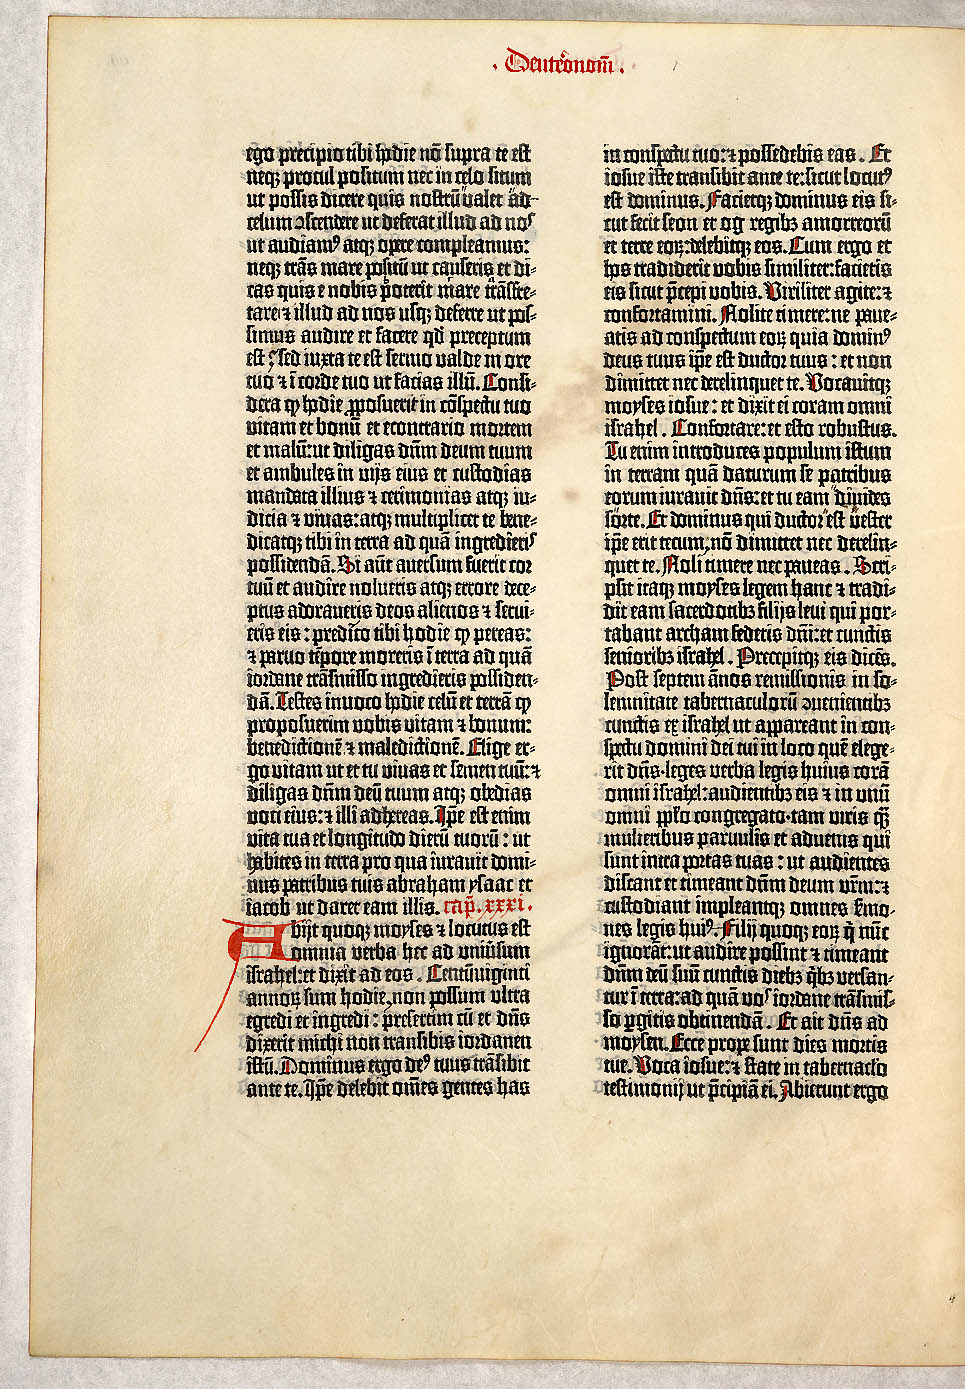 . Deut̾onom̄ .
ego precipio tibi hodie nō supra te est
neqꝫ procul positum nec in celo situm
ut possis dicere quis nostrū valet ad
celum ꝯscendere ut deferat illud ad noꝰ
ut audiamꝰ atqꝫ opere compleamus:
neqꝫ trās mare positū ut causeris et di⸗
cas quis e nobis p̄oterit mare trāsfre⸗
tare: ⁊ illud ad nos usqꝫ deferre ut pos⸗
simus audire et facere qd̄ preceptum
est ⸵ sed iuxta te est sermo valde in ore
tuo ⁊ ī corde tuo ut facias illū. Consi⸗
dera ꝙ hodie ꝓposuerit in cōspectu tuo
vitam et bonū et econtrario mortem
et malū: ut diligas dn̄m deum tuum
et ambules in vijs eius et custodias
mandata illius ⁊ cerimonias atqꝫ iu⸗
dicia ⁊ vivas: atqꝫ multiplicet te bene⸗
dicatqꝫ tibi in terra ad quā ingredieriꝰ
possidendā. Si aūt aversum fuerit cor
tuū et audire nolueris atqꝫ errore dece⸗
ptus adoraveris deos alienos ⁊ servi⸗
eris eis: predico tibi hodie ꝙ pereas:
⁊ parvo tēpore moreris ī terra ad quā
iordane trāsmisso ingredieris possiden⸗
dā. Testes invoco hodie celū et terrā ꝙ
proposuerim vobis vitam ⁊ bonum:
benedictionē ⁊ maledictionē. Elige er⸗
go vitam ut et tu vivas et semen tuū: ⁊
diligas dn̄m deū tuum atqꝫ obedias
voci eius: ⁊ illi adhereas. Ip̄e est enim
vita tua et longitudo dierū tuorū: ut
habites in terra pro qua iuravit domi⸗
nus patribus tuis abraham ysaac et
iacob ut daret eam illis. cap̄. xxxi.
Abijt quoqꝫ moyses ⁊ locutus est
omnia verba hec ad univ̄sum
israhel: et dixit ad eos. Centūviginti
annoꝝ sum hodie, non possum ultra
egredi et ingredi: presertim cū et dn̄s
dixerit michi non transibis iordanen
istū. Dominus ergo deꝰ tuus trāsibit
ante te. Ip̄e delebit om̄es gentes has
in conspectu tuo: ⁊ possidebis eas. Et
iosue iste transibit ante te: sicut locutꝰ
est dominus. Facietqꝫ dominus eis si⸗
cut fecit seon et og regibꝫ amorreorū
et terre eoꝝ: delebitqꝫ eos. Cum ergo et
hos tradiderit vobis similiter: facietis
eis sicut p̄cepi vobis. Viriliter agite: ⁊
confortamini. Nolite timere: ne pave⸗
atis ad conspectum eoꝝ quia dominꝰ
deus tuus ip̄e est ductor tuus: et non
dimittet nec derelinquet te. Vocavitqꝫ
moyses iosue: et dixit ei coram omni
israhel. Confortare: et esto robustus.
Tu enim introduces populum istum
in terram quā daturum se patribus
eorum iuravit dn̄s: et tu eam divides
sorte. Et dominus qui ductor est vester
ip̄e erit tecum, nō dimittet nec derelin⸗
quet te. Noli timere nec paveas. Scri⸗
psit itaqꝫ moyses legem hanc ⁊ tradi⸗
dit eam sacerdotibꝫ filijs levi qui por⸗
tabant archam federis dn̄i: et cunctis
senioribꝫ israhel. Precepitqꝫ eis dicēs.
Post septem ānos remissionis in so⸗
lemnitate tabernaculorū ꝯvenientibꝫ
cunctis ex israhel ut appareant in con⸗
spectu domini dei tui in loco quē elege⸗
rit dn̄s. leges verba legis huius corā
omni israhel: audientibꝫ eis ⁊ in unū
omni pp̄lo congregato. tam viris qᷓꝫ
mulieribus parvulis et advenis qui
sunt intra portas tuas: ut audientes
discant et timeant dn̄m deum vr̄m: ⁊
custodiant impleantqꝫ omnes s̄mo⸗
nes legis huiꝰ. Filij quoqꝫ eoꝝ q̄ nūc
ignorāt: ut audire possint ⁊ timeant
dn̄m deū suū cunctis diebꝫ q̄bꝫ versan⸗
tur ī terra: ad quā voꝰ iordane trāsmis⸗
so ꝑgitis obtinendā. Et ait dn̄s ad
moysen. Ecce prope sunt dies mortis
tue. Voca iosue: ⁊ state in tabernaclo
testimonij ut p̄cipiā ei. Abierunt ergo